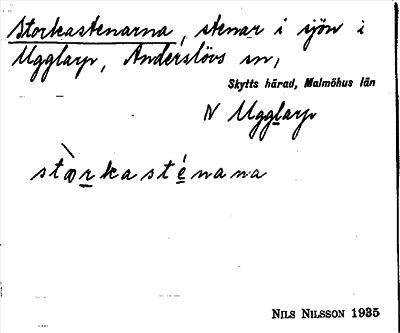 Storkastenarna, stenar i sjön i
Ugglarp, Anderslövs sn,
Skytts härad, Malmöhus län
N Ugglarp
stòrkasténana
NILS NILSSON 1935